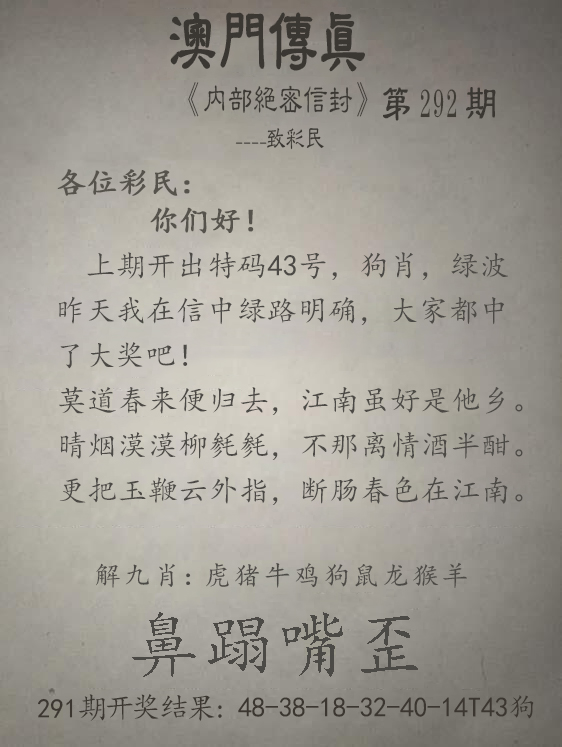 澳門傳眞
《内部絕密信封》第292期
----致彩民
各位彩民：
你们好！
上期开出特码43号，狗肖，绿波
昨天我在信中绿路明确，大家都中
了大奖吧！
莫道春来便归去，江南虽好是他乡。
晴烟漠漠柳毵毵，不那离情酒半酣。
更把玉鞭云外指，断肠春色在江南。
解九肖：虎猪牛鸡狗鼠龙猴羊
鼻蹋嘴歪
291期开奖结果：48-38-18-32-40-14T43狗